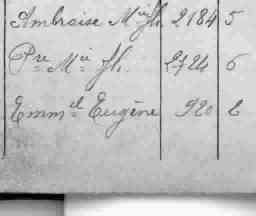 Ambroise Mie Jh. 2184 5
Pre Mie Jh. 2724 6
Emmel Eugène 920 6